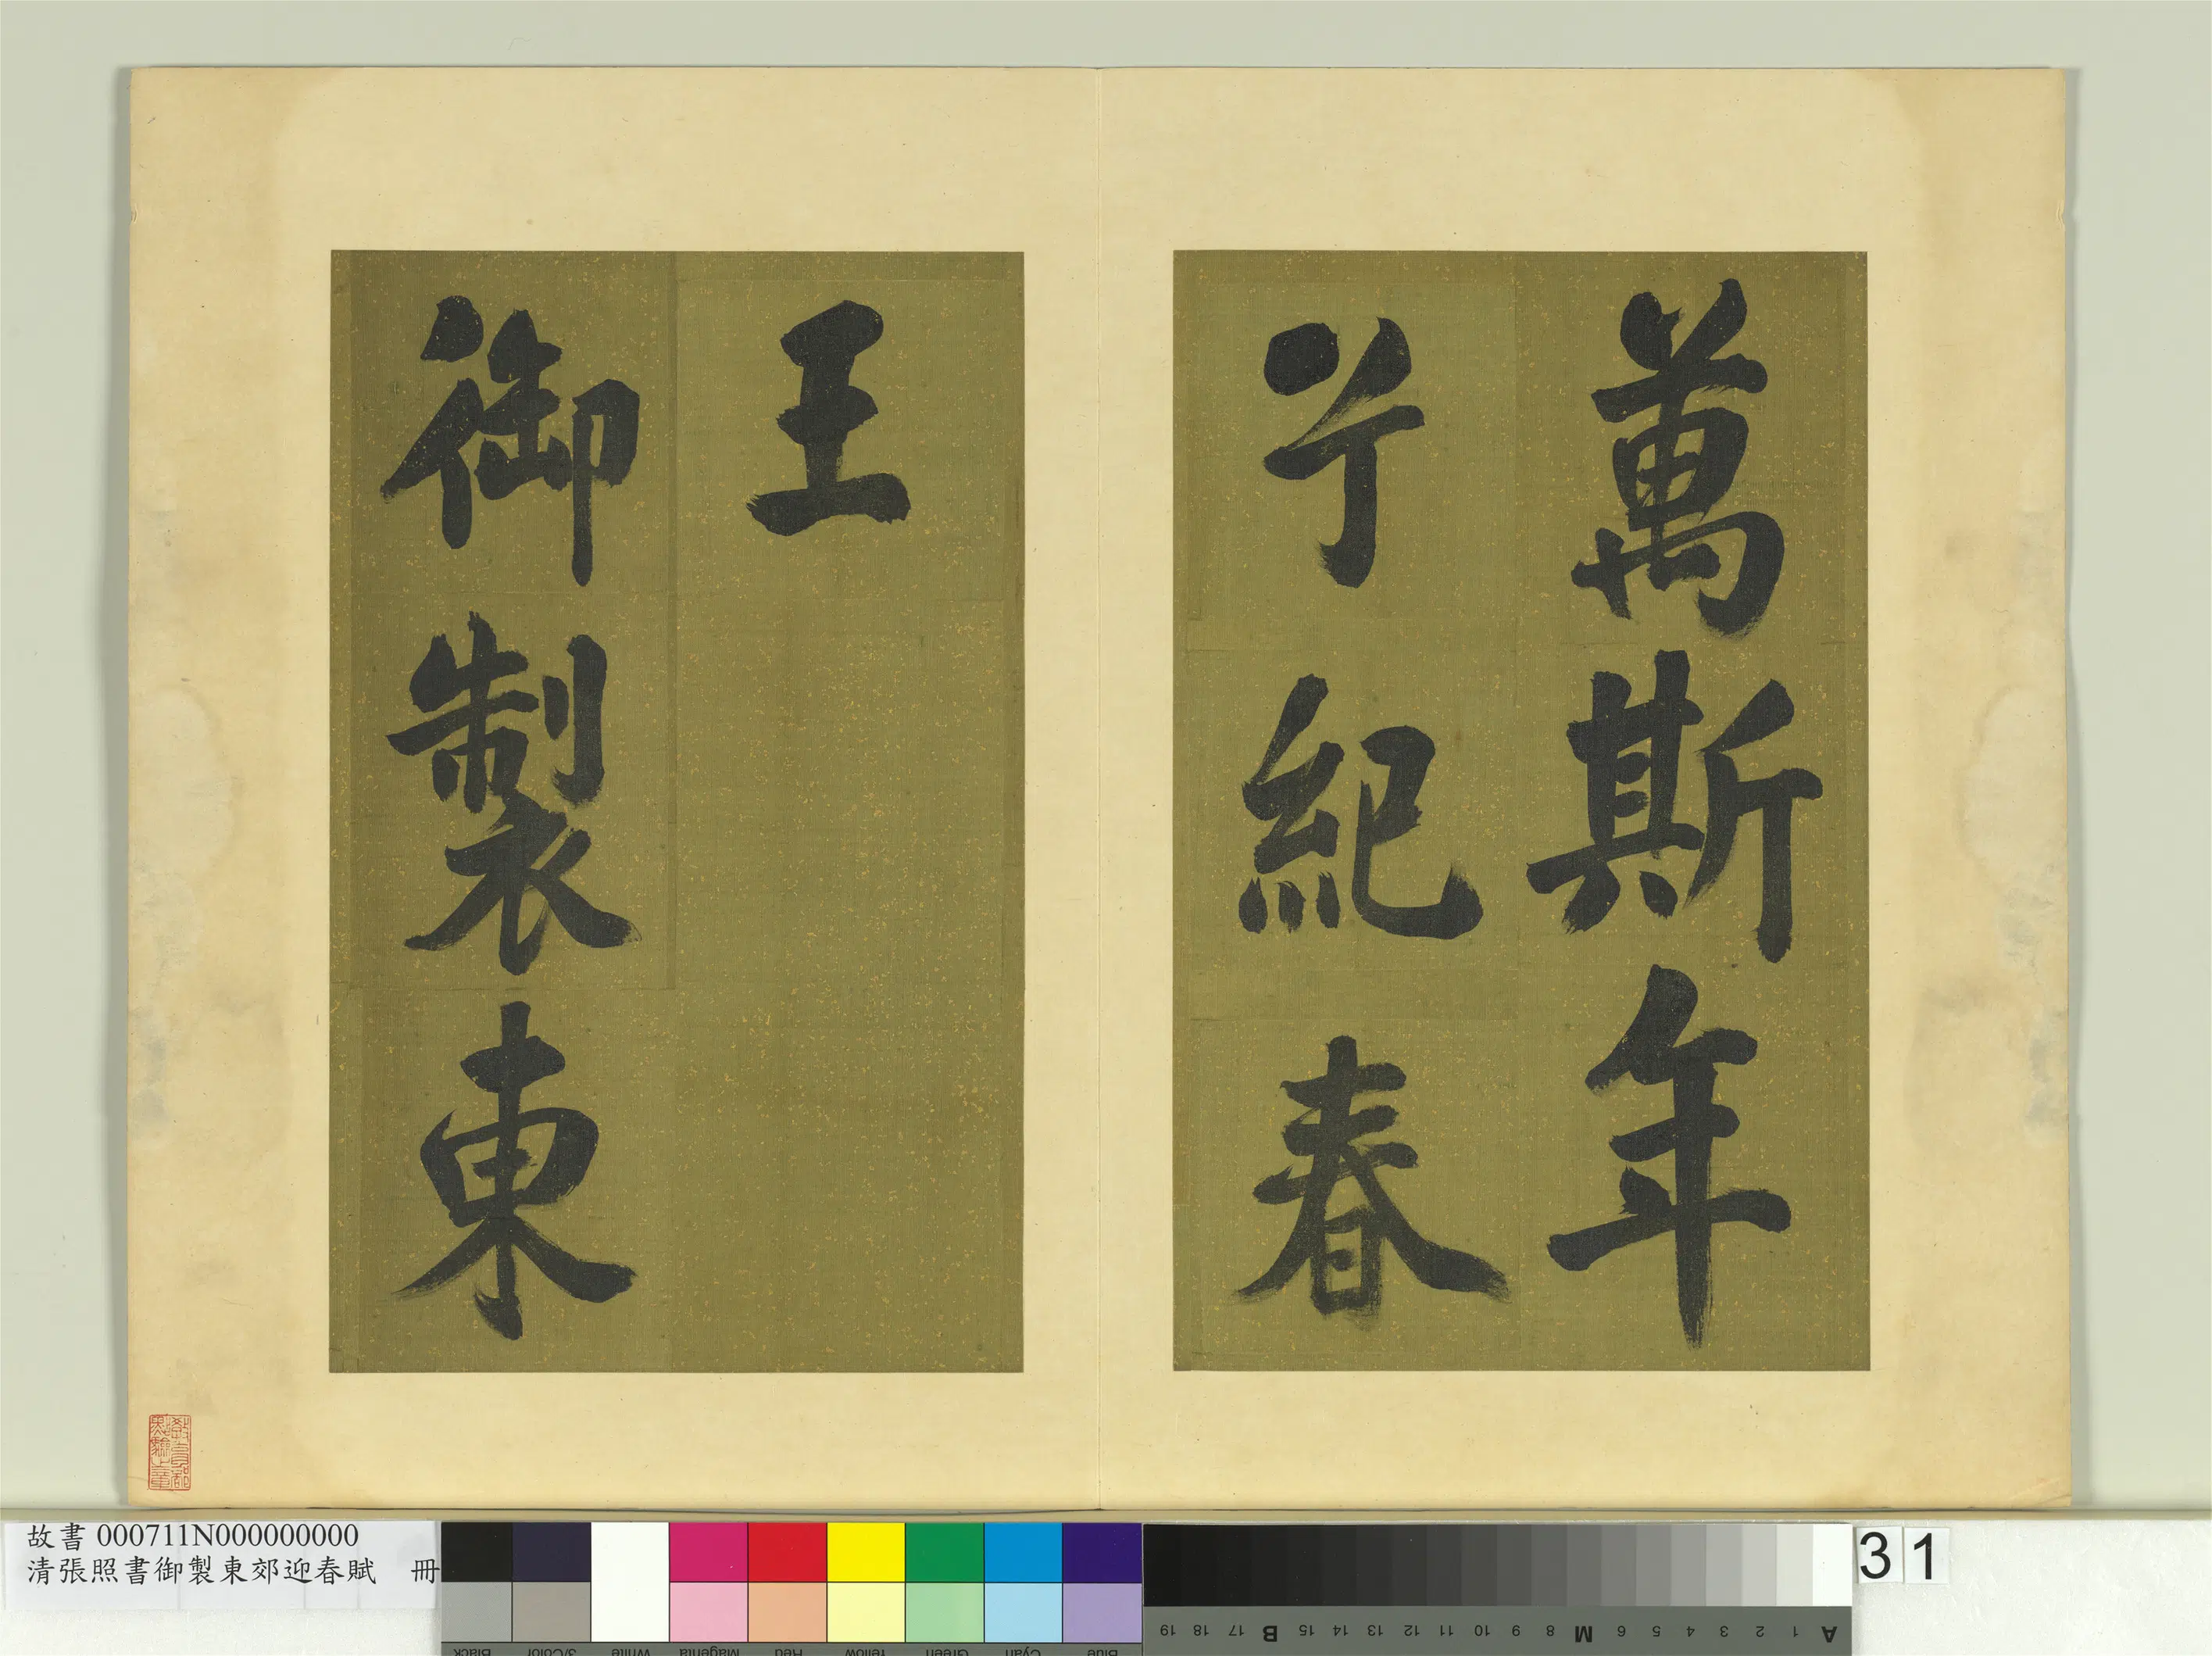 萬斯年
兮紀春
王
御製東
故書 000711N000000000
清張照書御製東郊迎春賦 冊
31
Black
3/Color
White
Magenta
Red
Yellow
Green
Cyan
Blue
19 18 17 B 15 14 13 12 11 10 9 8 M 6 5 4 3 2 1 A